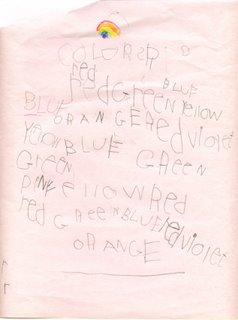 COLORS
red
red Green BLUE Yellow
BLUE ORANGE Red violet
Yellow BLUE GREEN
Green
PINK ellow Red
red GReen BLUE red violet
ORANGE